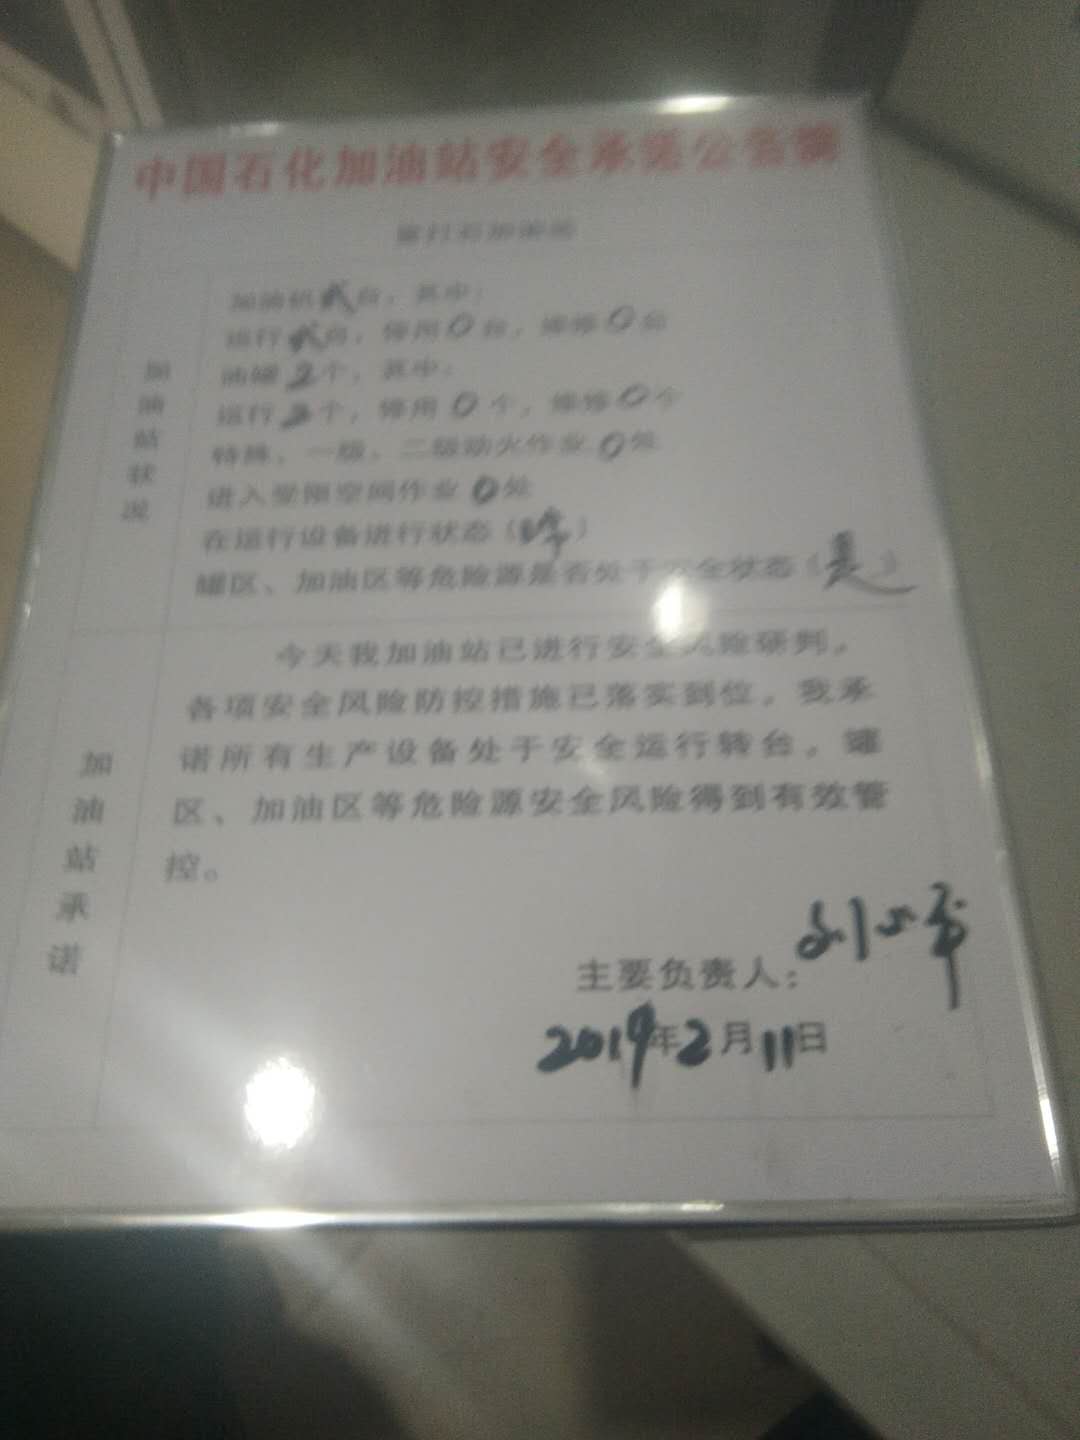 中国石化加油站安全承诺公告牌
加油站状况
加油机 台，其中：
运行 台，停用0台，维修0台
油罐2个，其中：
运行2个，停用0个，维修0个
特殊、一级、二级动火作业0处
进入受限空间作业0处
在运行设备进行状态（ ）
罐区、加油区等危险源是否处于安全状态（是）
加油站承诺
今天我加油站已进行安全风险研判，
各项安全风险防控措施已落实到位，我承
诺所有生产设备处于安全运行转台，罐
区、加油区等危险源安全风险得到有效管
控。
主要负责人：刘
2019年2月11日